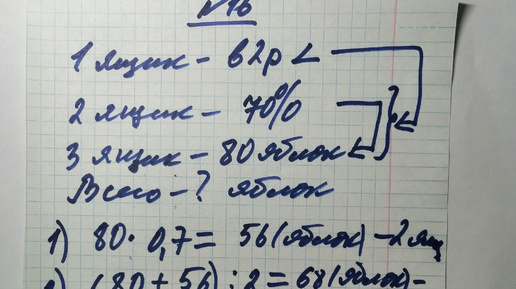 №16
1 ящик - в 2р <
2 ящик - 70%
3 ящик - 80 яблок
Всего - ? яблок
1) 80 · 0,7 = 56 (яблок) - 2 ящ
2) (80 + 56) : 2 = 68 (яблок) -